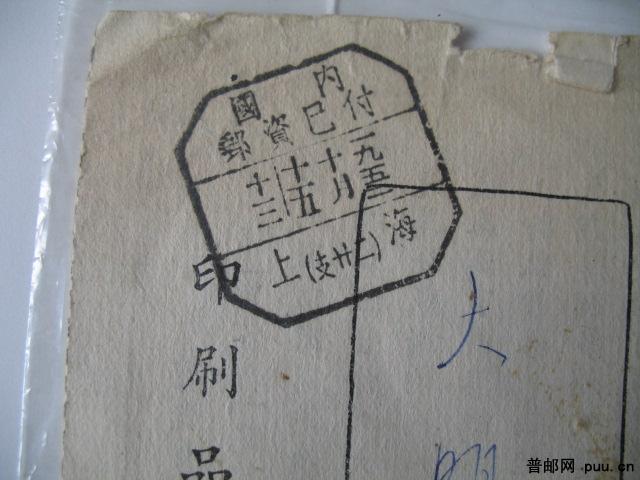 國内
郵資已付
一九五
十月
十五
十三
上(支廿二)海
印刷品
大
普邮网 .puu.cn